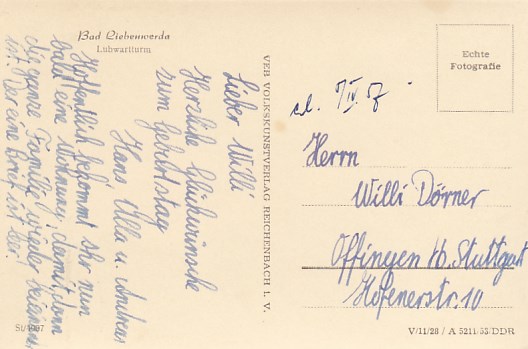 Bad Liebenwerda
Lubwartturm
Lieber Willi
Herzliche Glückwünsche
zum Geburtstag
Hans, Ulla u. Andreas
Hoffentlich bekommt Ihr nun
bald eine Wohnung, damit dann
die ganze Familie wieder beisammen
ist. Der eine Brief ist leer!
VEB VOLKSKUNSTVERLAG REICHENBACH I. V.
Echte
Fotografie
7/IV. 57
Herrn
Willi Dörner
Offingen b/b. Stuttgart
Hofenerstr. 10
V/11/28 / A 5211/53/DDR